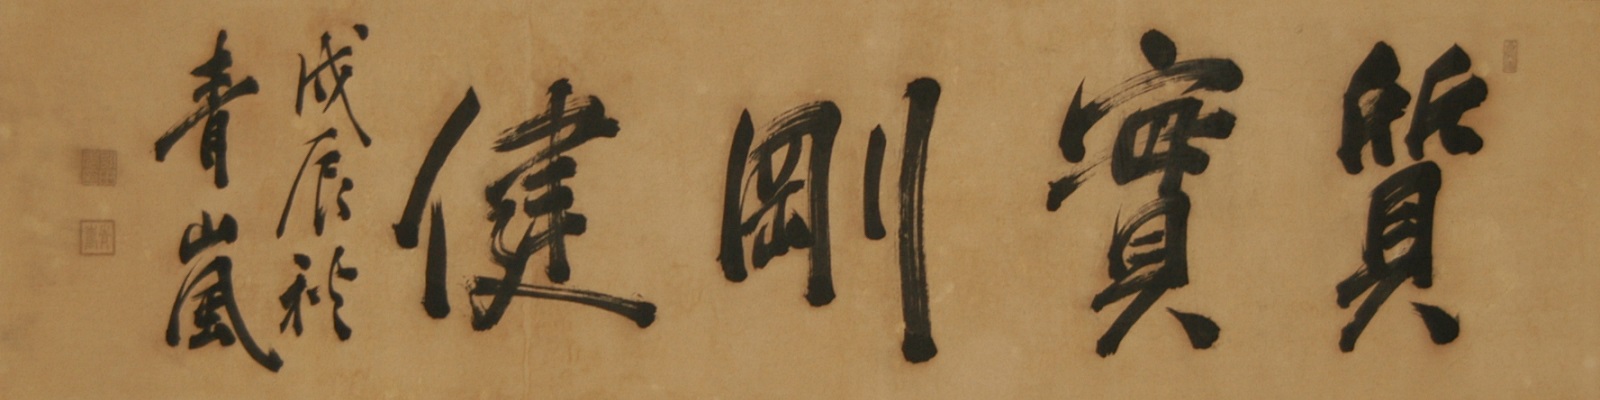 質實剛健
戊辰秋
青嵐